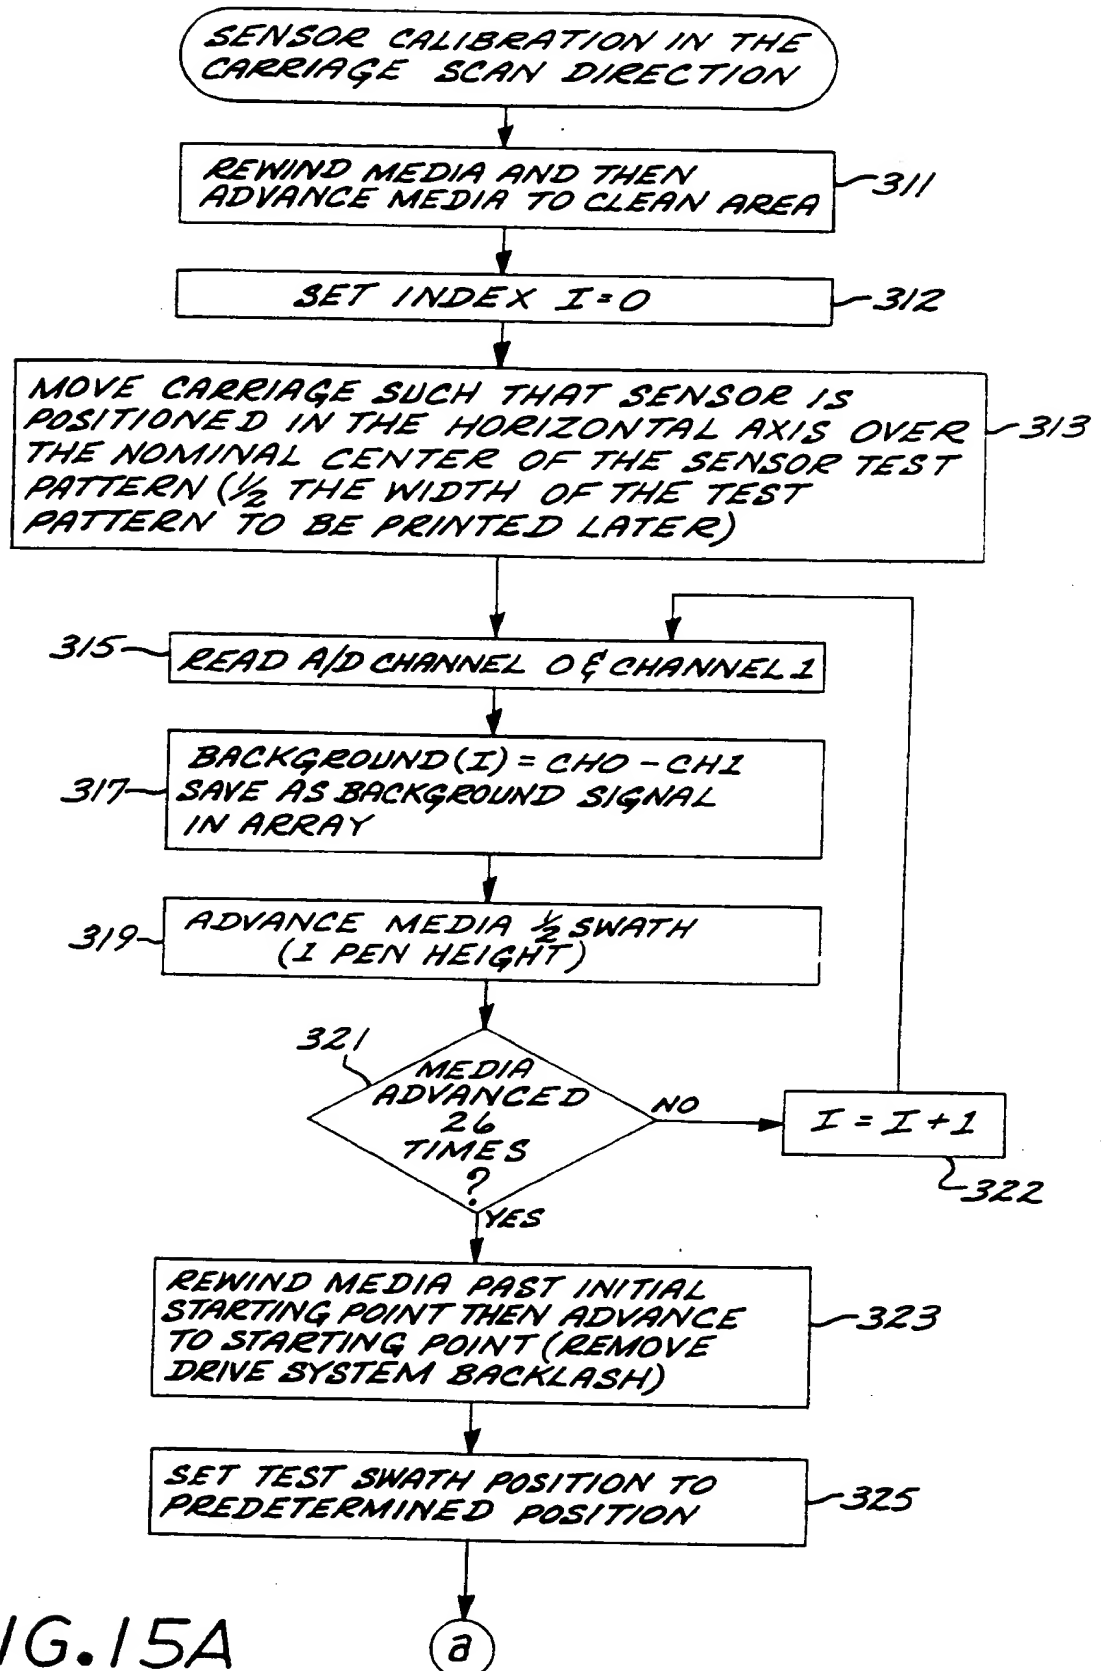 SENSOR CALIBRATION IN THE
CARRIAGE SCAN DIRECTION
REWIND MEDIA AND THEN
ADVANCE MEDIA TO CLEAN AREA
311
SET INDEX I=0
312
MOVE CARRIAGE SUCH THAT SENSOR IS
POSITIONED IN THE HORIZONTAL AXIS OVER
THE NOMINAL CENTER OF THE SENSOR TEST
PATTERN (1/2 THE WIDTH OF THE TEST
PATTERN TO BE PRINTED LATER)
313
315
READ A/D CHANNEL 0 & CHANNEL 1
BACKGROUND (I) = CH0 - CH1
SAVE AS BACKGROUND SIGNAL
IN ARRAY
317
ADVANCE MEDIA 1/2 SWATH
(1 PEN HEIGHT)
319
321
MEDIA
ADVANCED
26
TIMES
?
NO
I = I + 1
322
YES
REWIND MEDIA PAST INITIAL
STARTING POINT THEN ADVANCE
TO STARTING POINT (REMOVE
DRIVE SYSTEM BACKLASH)
323
SET TEST SWATH POSITION TO
PREDETERMINED POSITION
325
a
IG. 15A